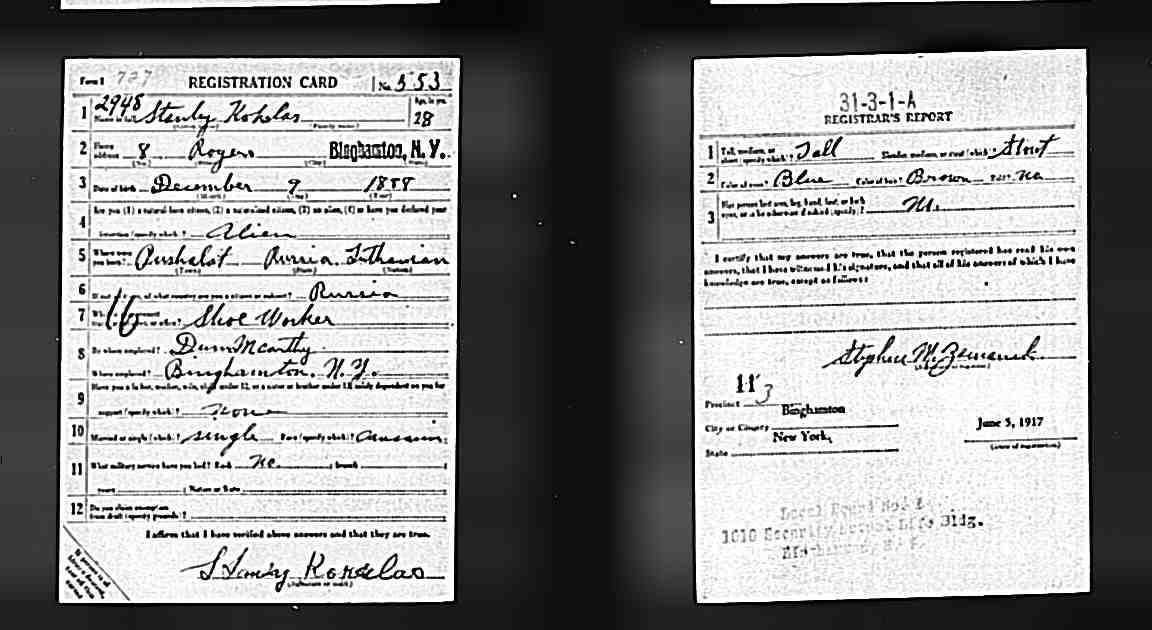 Form 1 727 REGISTRATION CARD No. 553
1 2948 Name in full Stanly Koholas Age, in yrs. 28
(Given name) (Family name)
2 Home address 8 Rogers Binghamton, N. Y.
(No.) (Street) (City) (State)
3 Date of birth December 9 1888
(Month) (Day) (Year)
4 Are you (1) a natural-born citizen, (2) a naturalized citizen, (3) an alien, (4) or have you declared your
intention (specify which)? Alien
5 Where were you born? Russia Lithuanian
(Town) (State) (Nation)
6 If not a citizen, of what country are you a citizen or subject? Russia
7 16 Shoe Worker
8 By whom employed? Dunn McCarthy
Where employed? Binghamton, N. Y.
9 Have you a father, mother, wife, child under 12, or a sister or brother under 12, solely dependent on you for
support (specify which)? None
10 Married or single (which)? single Race (specify which)? Caucasian
11 What military service have you had? Rank no ; branch ;
years ; Nation or State
12 Do you claim exemption from draft (specify grounds)?
I affirm that I have verified above answers and that they are true.
(Signature or mark)
31-3-1-A
REGISTRAR'S REPORT
1 Tall, medium, or short (specify which)? Tall Slender, medium, or stout (which)? Stout
2 Color of eyes? Blue Color of hair? Brown Bald? No
3 Has person lost arm, leg, hand, foot, or both
eyes, or is he otherwise disabled (specify)?
I certify that my answers are true, that the person registered has read his own
answers, that I have witnessed his signature, and that all of his answers of which I have
knowledge are true, except as follows:
Stephen M.
(Signature of registrar)
Precinct 3
City or County Binghamton
State New York, June 5, 1917
(Date of registration)
Local Board No.
1010 Security Mutual Life Bldg.
Binghamton, N. Y.